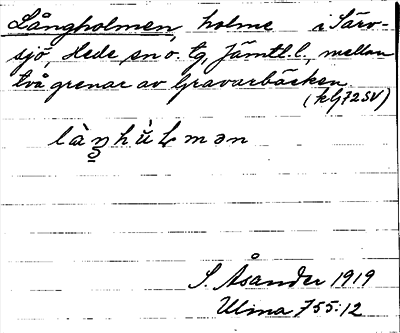 Långholmen, holme i Särv-
sjö, Hede sn o. tg, Jämtl. l., mellan
två grenar av Gravarbäcken.
(kbl 72 SV)
S. Åsander 1919
Ulma 755:12